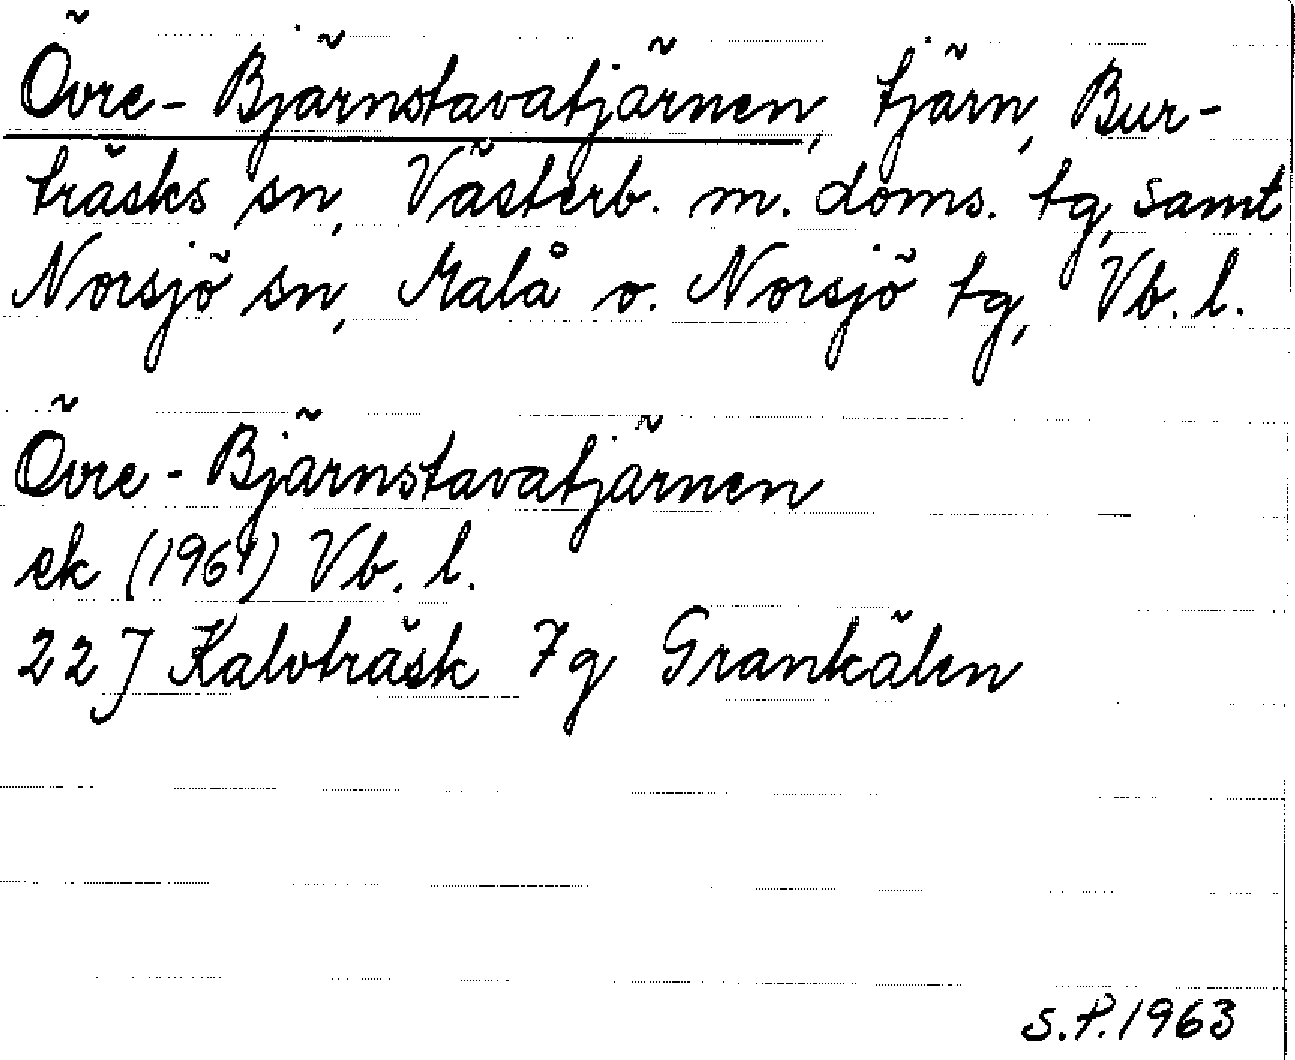 Övre-Bjärnstavatjärnen, tjärn, Bur-
träsks sn, Västerb. m. doms. tg, samt
Norsjö sn, Malå o. Norsjö tg, Vb. l.
Övre-Bjärnstavatjärnen
ek (1961) Vb. l.
22 J Kalvträsk 7g Grankälen
S.P. 1963